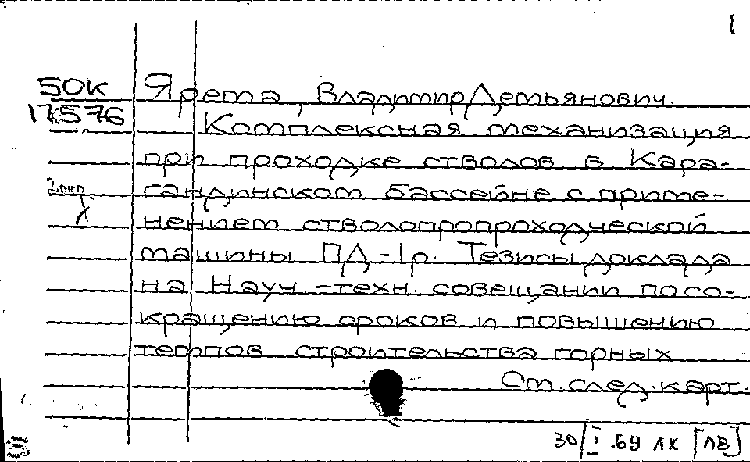 1
50к
17576
Ярета, Владимир Демьянович.
Комплексная механизация
при проходке стволов в Кара-
гандинском бассейне с приме-
нением стволопропроходческой
машины ПД-1р. Тезисы доклада
на Науч-техн. совещании по со-
кращению сроков и повышению
темпов строительства горных
См. след. карт.
30/I.64 ЛК [ЛВ]